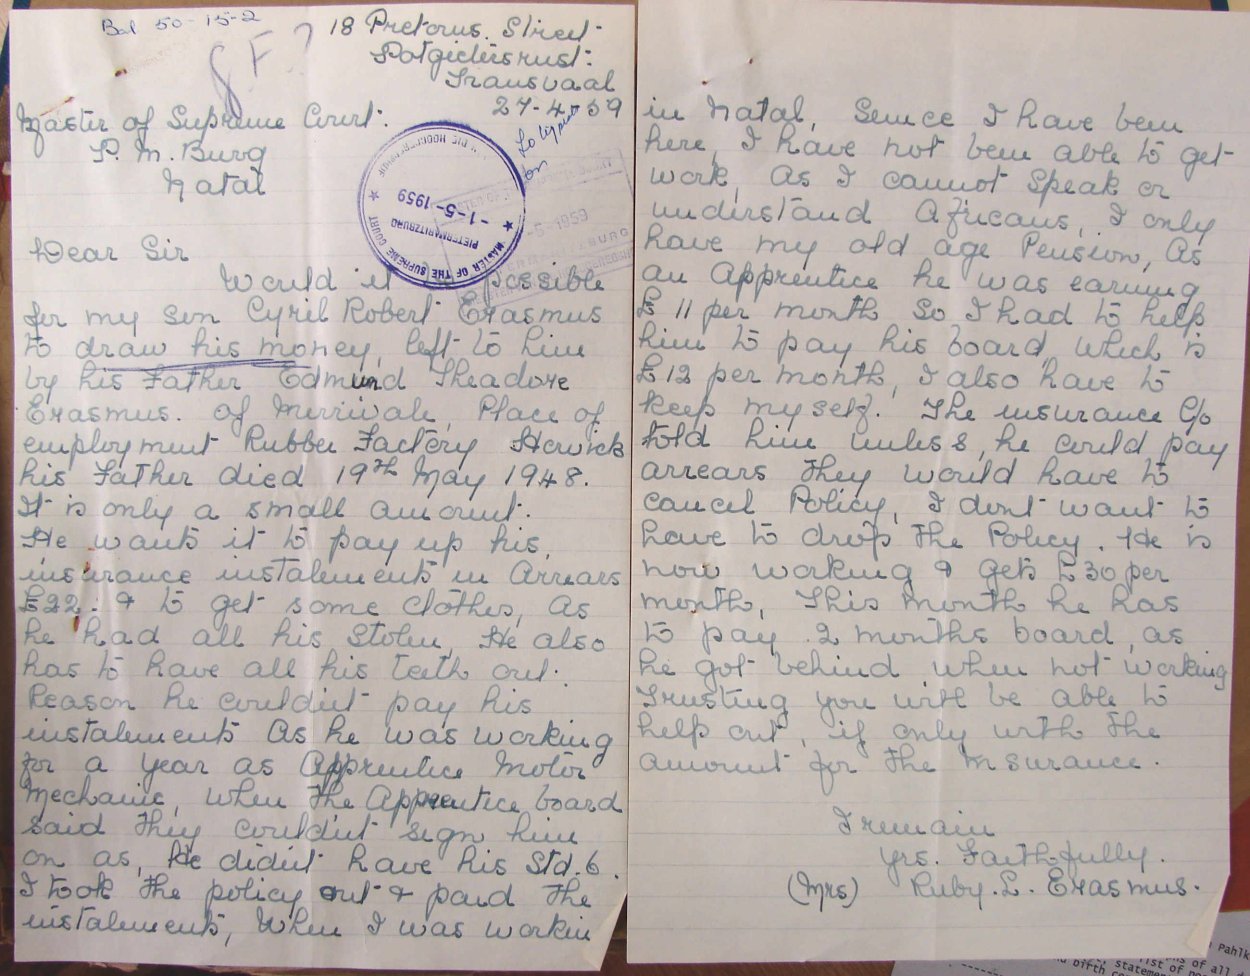 Bal 50-15-2
18 Pretorius. Street
Potgietersrust.
Transvaal
27-4-59
Master of Supreme Court.
P. M. Burg
Natal
MASTER OF THE SUPREME COURT
PIETERMARITZBURG
-1-5-1959
Dear Sir
Would it be possible
for my son Cyril Robert Erasmus
to draw his money, left to him
by his Father Edmund Theadore
Erasmus. of Merrivale, Place of
employment Rubber Factory Howick
his Father died 19th May 1948.
It is only a small amount.
He wants it to pay up his,
insurance instalments in Arrears
£22. & to get some clothes, as
he had all his stolen, He also
has to have all his teeth out.
Reason he couldnt pay his
instalments As he was working
for a year as Apprentice Motor
Mechanic, when the Apprentice board
said they couldnt sign him
on as, He didnt have his Std. 6.
I took the policy out & paid the
instalments, When I was workin
in Natal, Sence I have been
here, I have not been able to get
work, As I cannot Speak or
understand Africans, I only
have my old age Pension, As
an Apprentice he was earning
£11 per month So I had to help
him to pay his board, which is
£12 per month, I also have to
keep myself. The insurance C/o
told him unless, he could pay
arrears they would have to
cancel Policy, I dont want to
have to drop the Policy. He is
now working & gets £30 per
month, This month he has
to pay 2 months board, as
he got behind when not working
Trusting you will be able to
help out, if only with the
amount for the Insurance.
I remain
Yrs. Faithfully.
(Mrs) Ruby. L. Erasmus.